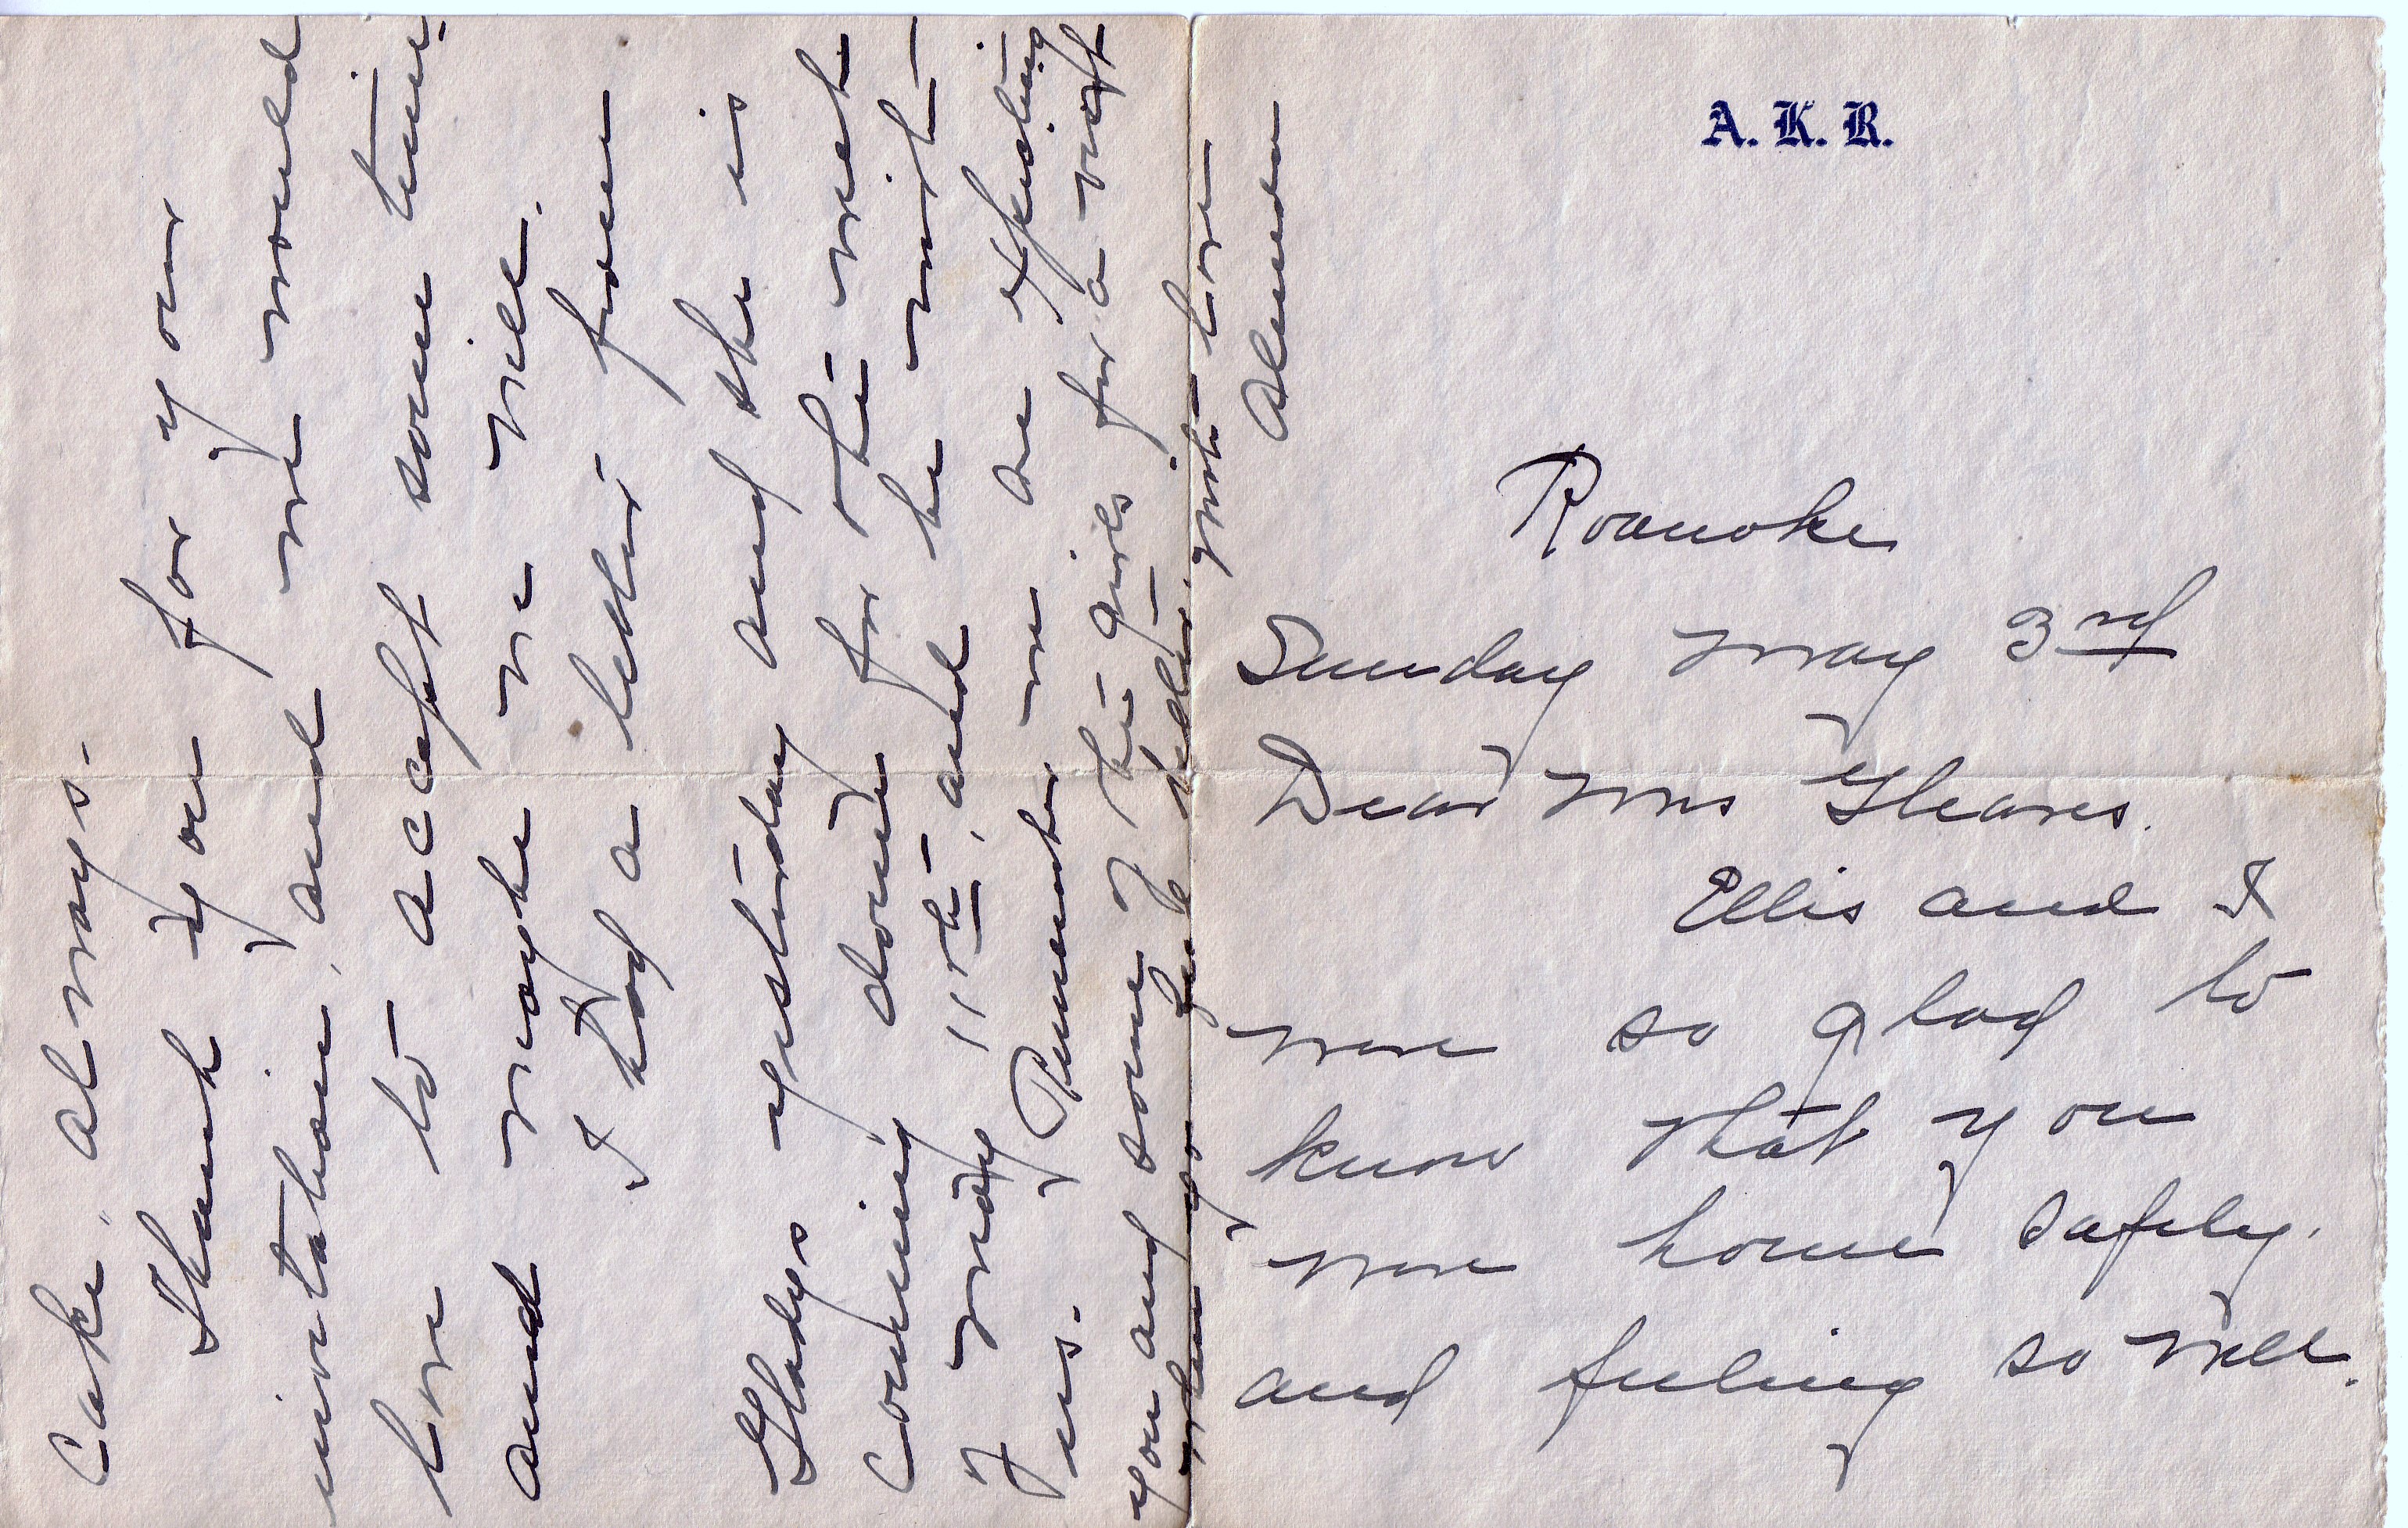 A. K. R.
Roanoke
Sunday May 3rd
Dear Mrs Gleaves.
Ellis and I
were so glad to
know that you
were home safely.
and feeling so well.
Cake, always.
Thank you for your
invitation, and we would
love to accept some time
and maybe we will.
I had a letter from
Gladys yesterday and she is
coming down for the week
of May 11th, and be with
us. Remember we are expecting
you and some of the girls for a visit
when you feel better. Much love
Almeda